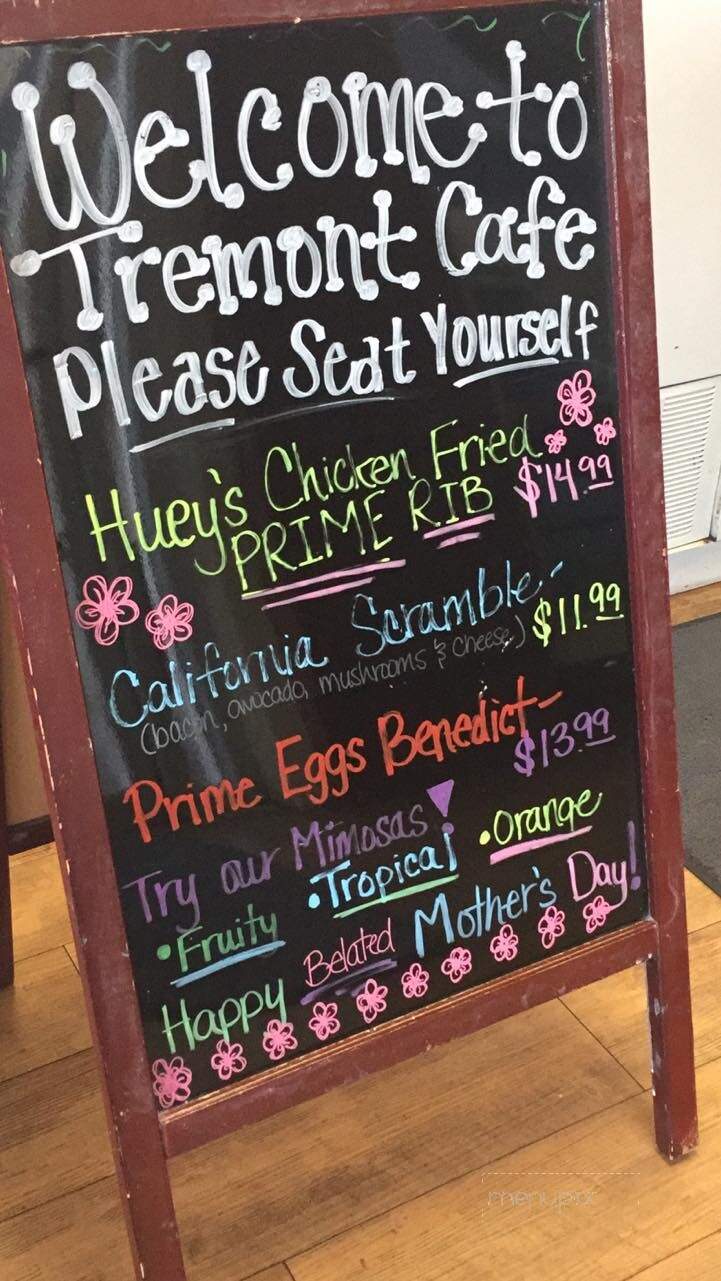 Welcome to
Tremont Cafe
Please Seat Yourself
Huey's Chicken Fried
PRIME RIB $14.99
California Scramble-
(bacon, avocado, mushrooms & cheese) $11.99
Prime Eggs Benedict-
$13.99
Try our Mimosas!
•Fruity •Tropical •Orange
Happy Belated Mother's Day!
menupix